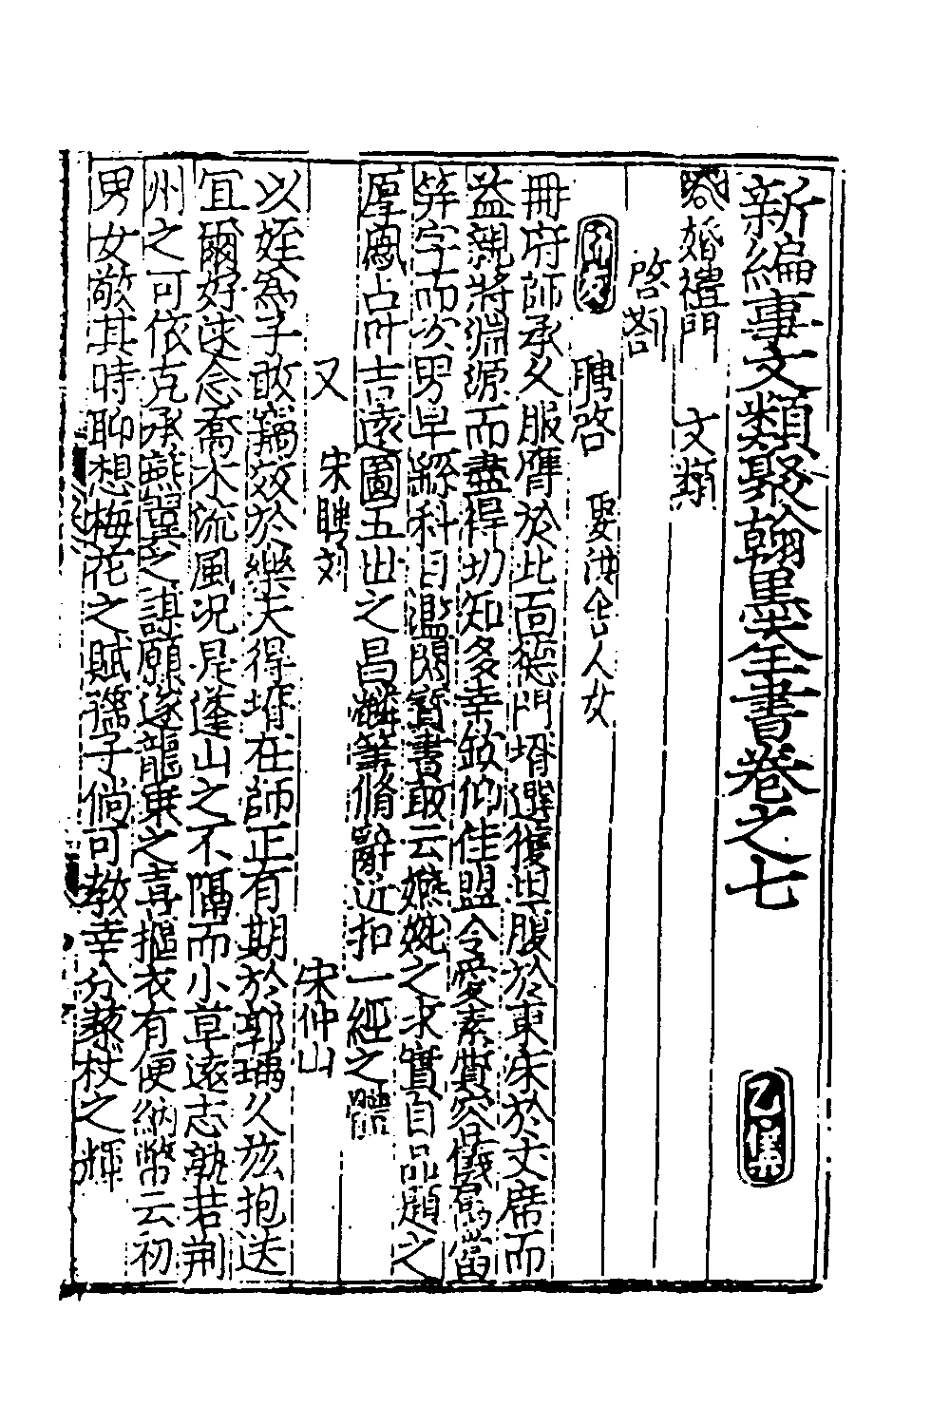 新編事文類聚翰墨全書卷之七 乙集
婚禮門 文類
啓劄
聘啓 娶洪舍人女
冊府師承久服膺於此面德門壻選獲坦腹於東床於丈席而
益親將淵源而盡得切知多幸欽仰佳盟令愛素質容儀當
笄字而次男早綴科目濫閱寶書敢云嬿婉之求實自品題之
厚鳳占叶吉遠圖五世之昌 脩辭近扣一經之體
又 宋聘刘 宋仲山
以姪為子敢竊效於樂天得壻在師正有期於郭瑀久茲抱送
宜爾好逑念喬木流風況是蓬山之不隔而小草遠志孰若荆
州之可依克承燕翼之謀願遂龍乘之喜摳衣有便納幣云初
男女敬其時聊想梅花之賦孺子倘可教幸分藜杖之輝